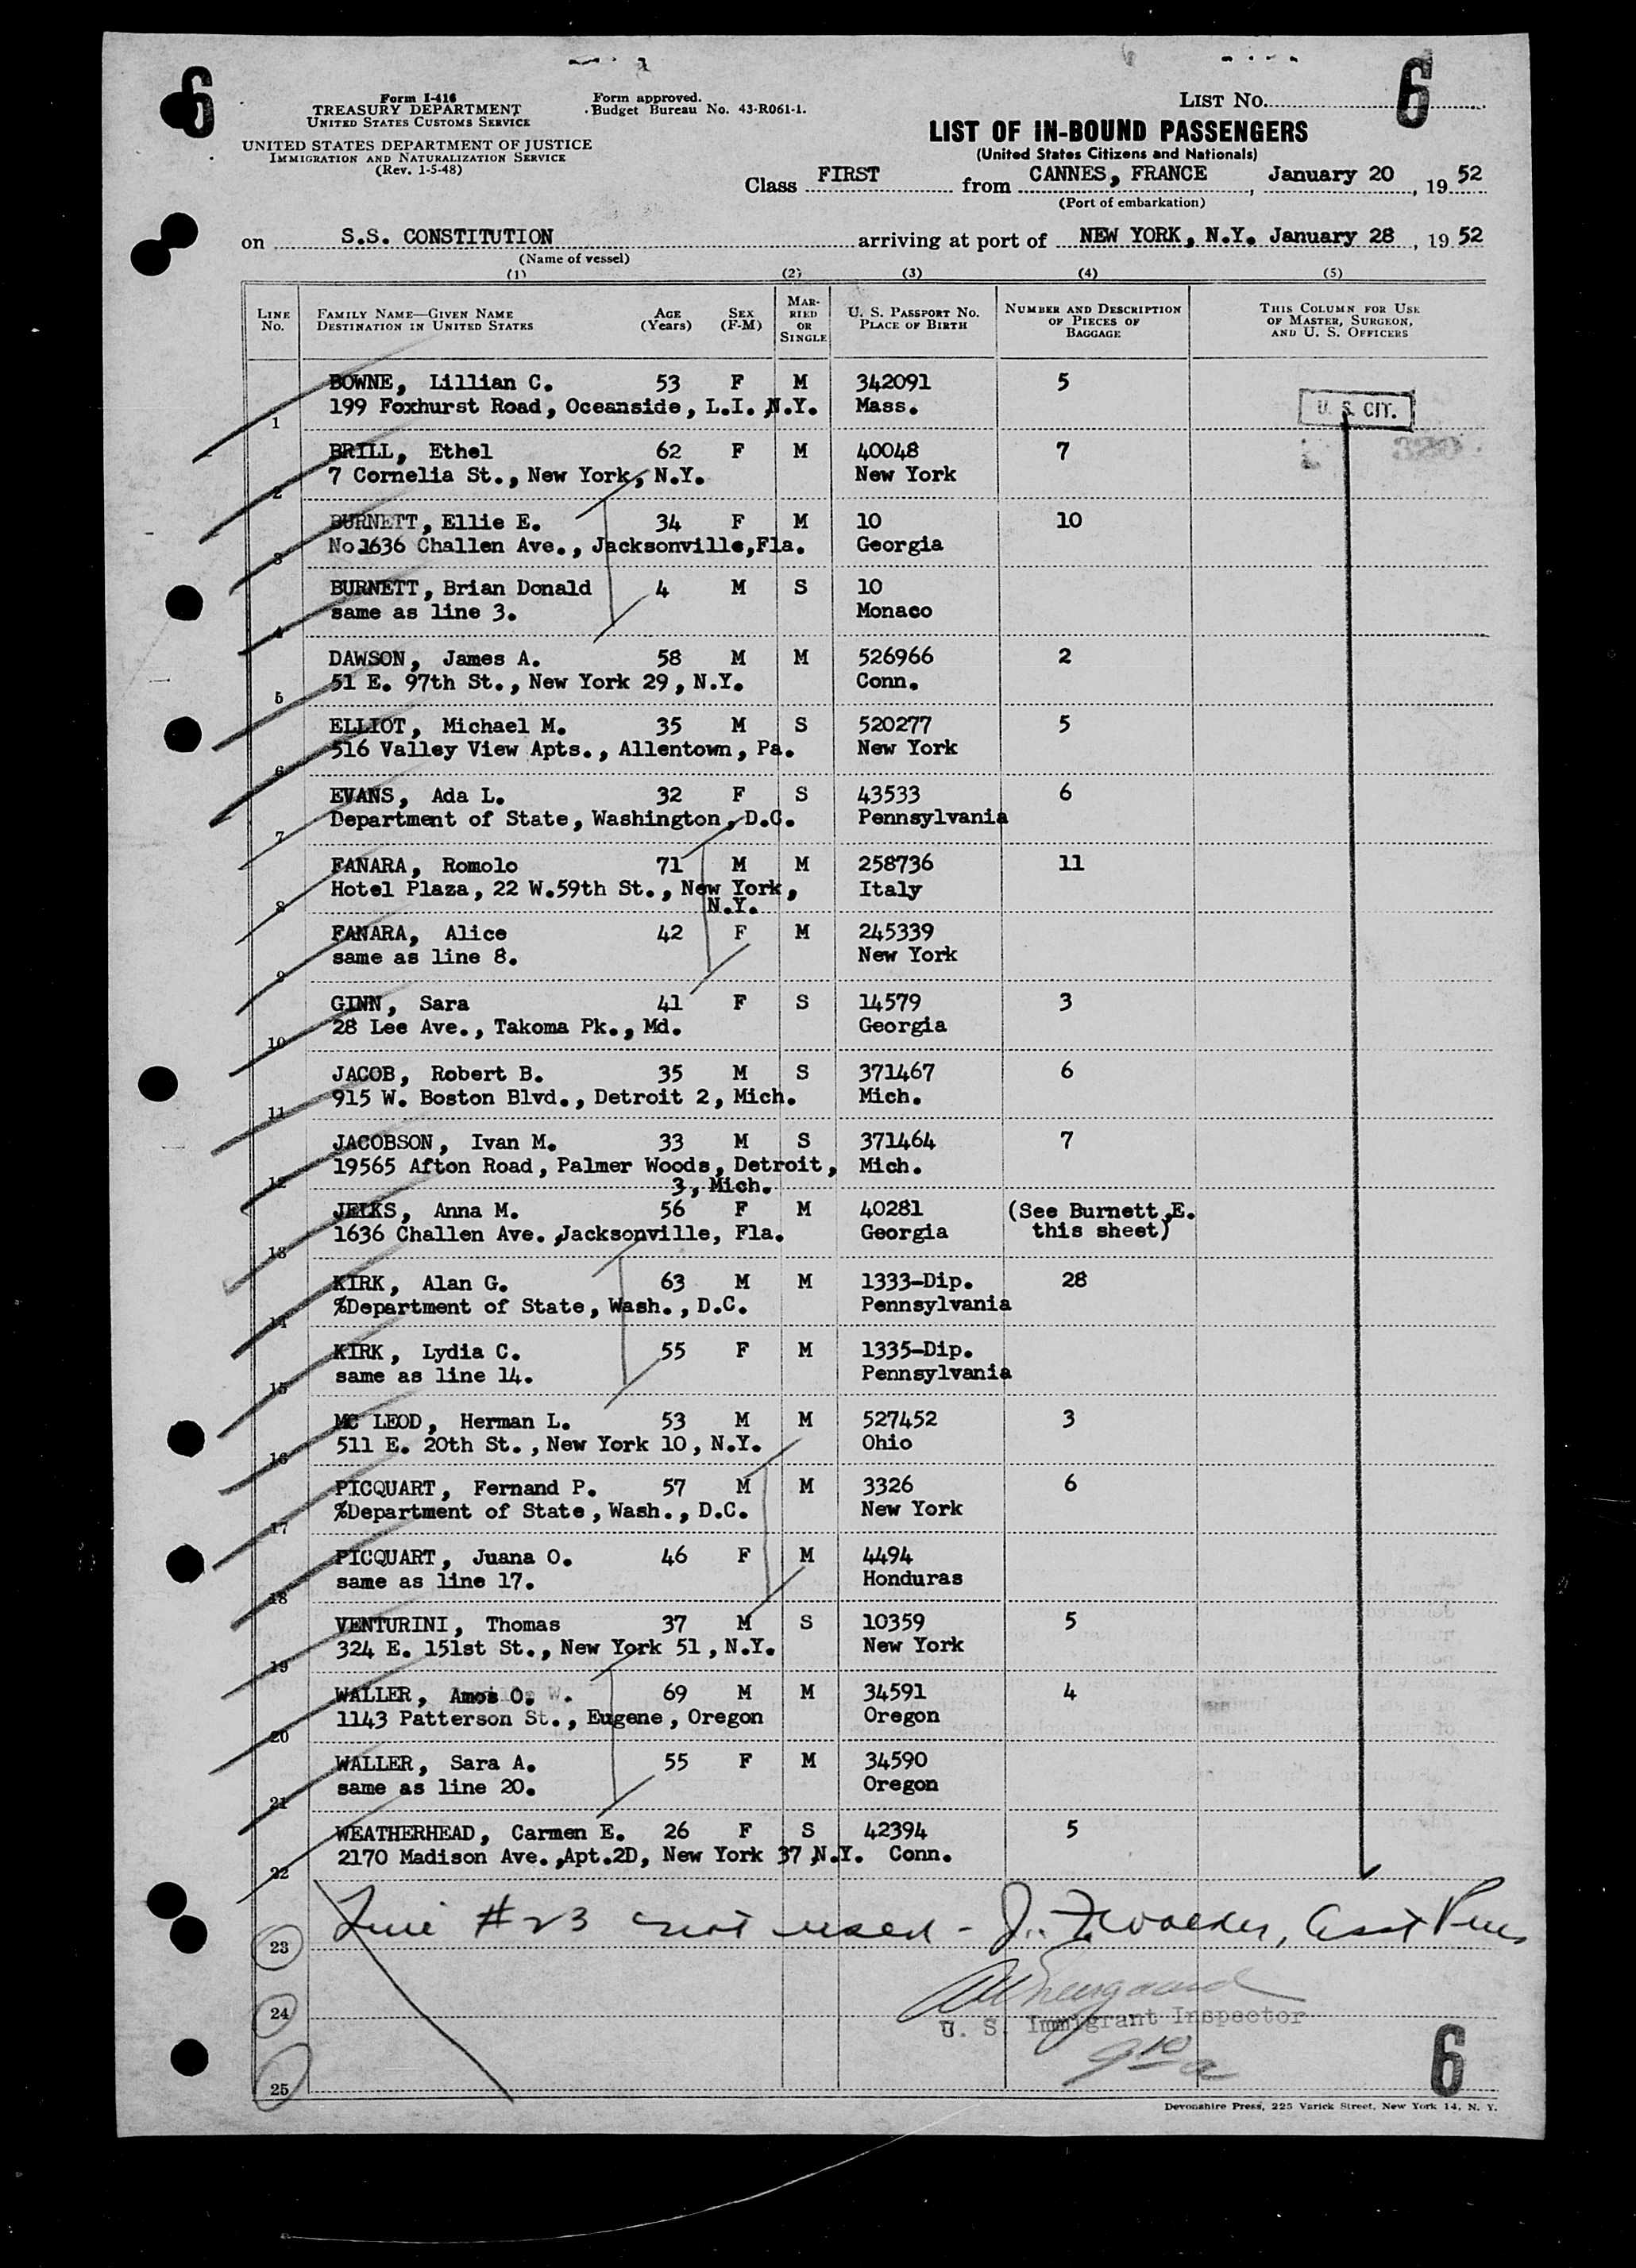 6
6
Form I-416
TREASURY DEPARTMENT
UNITED STATES CUSTOMS SERVICE
UNITED STATES DEPARTMENT OF JUSTICE
IMMIGRATION AND NATURALIZATION SERVICE
(Rev. 1-5-48)
Form approved.
Budget Bureau No. 43-R061-1.
LIST NO.
LIST OF IN-BOUND PASSENGERS
(United States Citizens and Nationals)
Class FIRST from CANNES, FRANCE, January 20, 19 52
(Port of embarkation)
on S.S. CONSTITUTION arriving at port of NEW YORK, N.Y. January 28, 19 52
(Name of vessel)
(1) (2) (3) (4) (5)
LINE NO. FAMILY NAME—GIVEN NAME DESTINATION IN UNITED STATES AGE (Years) SEX (F-M) MARRIED OR SINGLE U. S. PASSPORT NO. PLACE OF BIRTH NUMBER AND DESCRIPTION OF PIECES OF BAGGAGE THIS COLUMN FOR USE OF MASTER, SURGEON, AND U. S. OFFICERS
BOWNE, Lillian C. 53 F M 342091 5
1 199 Foxhurst Road, Oceanside, L.I. ,N.Y. Mass. U. S. CIT.
BRILL, Ethel 62 F M 40048 7
2 7 Cornelia St., New York, N.Y. New York
BURNETT, Ellie E. 34 F M 10 10
3 No.1636 Challen Ave., Jacksonville,Fla. Georgia
BURNETT, Brian Donald 4 M S 10
4 same as line 3. Monaco
DAWSON, James A. 58 M M 526966 2
5 51 E. 97th St., New York 29, N.Y. Conn.
ELLIOT, Michael M. 35 M S 520277 5
6 516 Valley View Apts., Allentown, Pa. New York
EVANS, Ada L. 32 F S 43533 6
7 Department of State, Washington, D.C. Pennsylvania
FANARA, Romolo 71 M M 258736 11
8 Hotel Plaza, 22 W.59th St., New York, Italy
N.Y.
FANARA, Alice 42 F M 245339
9 same as line 8. New York
GINN, Sara 41 F S 14579 3
10 28 Lee Ave., Takoma Pk., Md. Georgia
JACOB, Robert B. 35 M S 371467 6
11 915 W. Boston Blvd., Detroit 2, Mich. Mich.
JACOBSON, Ivan M. 33 M S 371464 7
12 19565 Afton Road, Palmer Woods, Detroit, Mich.
3, Mich.
JELKS, Anna M. 56 F M 40281 (See Burnett,E.
13 1636 Challen Ave. ,Jacksonville, Fla. Georgia this sheet)
KIRK, Alan G. 63 M M 1333-Dip. 28
14 %Department of State, Wash., D.C. Pennsylvania
KIRK, Lydia C. 55 F M 1335-Dip.
15 same as line 14. Pennsylvania
MC LEOD, Herman L. 53 M M 527452 3
16 511 E. 20th St., New York 10, N.Y. Ohio
PICQUART, Fernand P. 57 M M 3326 6
17 %Department of State, Wash., D.C. New York
PICQUART, Juana O. 46 F M 4494
18 same as line 17. Honduras
VENTURINI, Thomas 37 M S 10359 5
19 324 E. 151st St., New York 51, N.Y. New York
WALLER, Amos O. W. 69 M M 34591 4
20 1143 Patterson St., Eugene, Oregon Oregon
WALLER, Sara A. 55 F M 34590
21 same as line 20. Oregon
WEATHERHEAD, Carmen E. 26 F S 42394 5
22 2170 Madison Ave.,Apt.2D, New York 37,N.Y. Conn.
23 Line #23 not used - J. Asst Purs
24
U. S. Immigrant Inspector
9 10 a
25
6
Devonshire Press, 225 Varick Street, New York 14, N. Y.